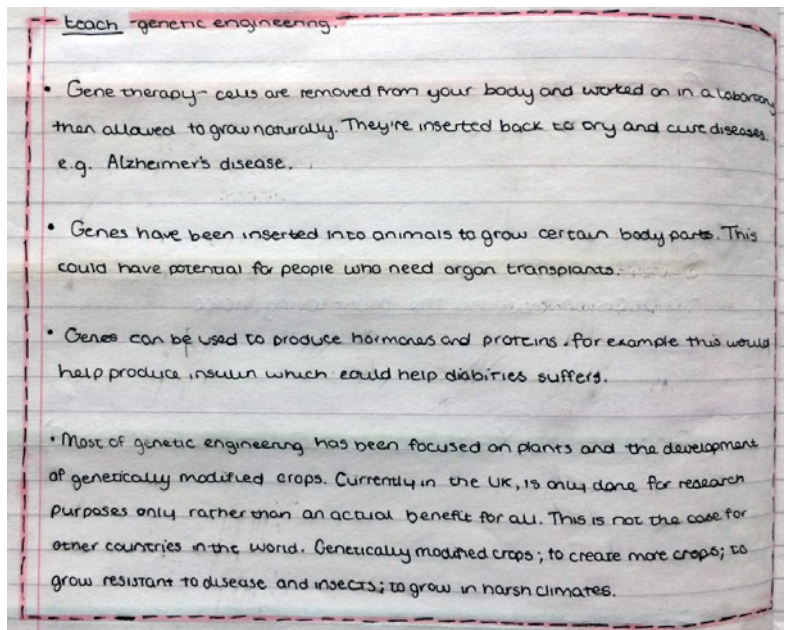 teach - genetic engineering.
• Gene therapy - cells are removed from your body and worked on in a laboratory
then allowed to grow naturally. They're inserted back to try and cure diseases
e.g. Alzheimer's disease.
• Genes have been inserted into animals to grow certain body parts. This
could have potential for people who need organ transplants.
• Genes can be used to produce hormones and proteins. for example this would
help produce insulin which could help diabities suffers.
• Most of genetic engineering has been focused on plants and the development
of genetically modified crops. Currently in the UK, is only done for research
purposes only rather than an actual benefit for all. This is not the case for
other countries in the world. Genetically modified crops; to create more crops; to
grow resistant to disease and insects; to grow in harsh climates.